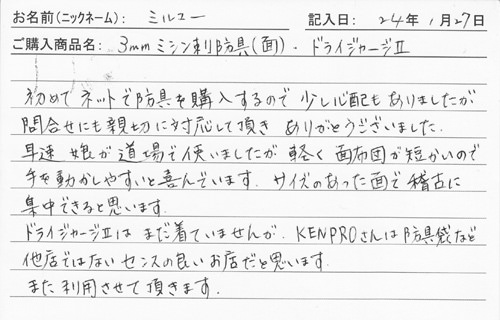 お名前(ニックネーム): ミルユー 記入日: 24年 1月27日
ご購入商品名: 3mmミシン刺防具(面)・ドライジャージⅡ
初めてネットで防具を購入するので少し心配もありましたが
問合せにも親切に対応して頂きありがとうございました.
早速娘が道場で使いましたが軽く面布団が短かいので
手を動かしやすいと喜んでいます. サイズのあった面で稽古に
集中できると思います.
ドライジャージⅡはまだ着ていませんが、KENPROさんは防具袋など
他店ではないセンスの良いお店だと思います.
また利用させて頂きます.